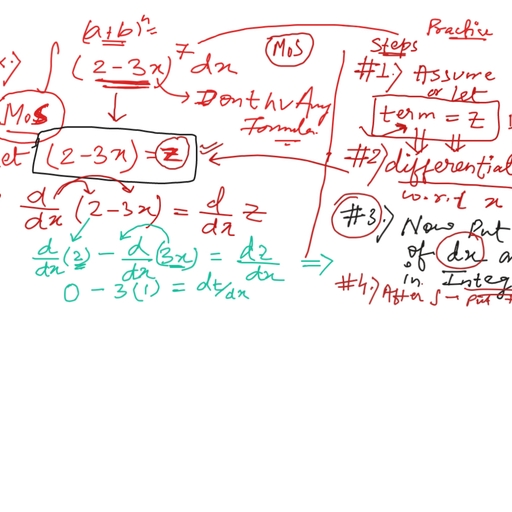 (a+b)ⁿ =
∫ (2-3x)⁷ dx
MoS
Don't hv Any
Formula.
MoS
(2-3x) = z
d/dx (2-3x) = d/dx z
d/dx (2) - d/dx (3x) = dz/dx ⇒
0 - 3(1) = dt/dx
Practice
Steps
#1.) Assume
or let
term = z
#2) differential
w.r.t x
#3.) Now Put
of dx
in Integ
#4.) After ∫ - Put